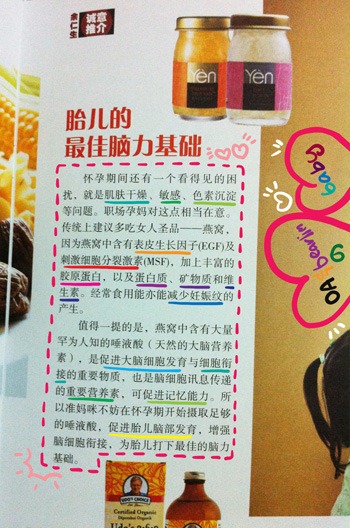 余仁生
诚意
推介
Yen
Yen
胎儿的
最佳脑力基础
怀孕期间还有一个看得见的困
扰，就是肌肤干燥、敏感、色素沉淀
等问题。职场孕妈对这点相当在意。
传统上建议多吃女人圣品——燕窝，
因为燕窝中含有表皮生长因子(EGF)及
刺激细胞分裂激素(MSF)，加上丰富的
胶原蛋白，以及蛋白质、矿物质和维
生素。经常食用能亦能减少妊娠纹的
产生。
值得一提的是，燕窝中含有大量
罕为人知的唾液酸（天然的大脑营养
素），是促进大脑细胞发育与细胞衔
接的重要物质，也是脑细胞讯息传递
的重要营养素，可促进记忆能力。所
以准妈咪不妨在怀孕期开始摄取足够
的唾液酸，促进胎儿脑部发育，增强
脑细胞衔接，为胎儿打下最佳的脑力
基础。
baby
UDO'S CHOICE
Certified Organic